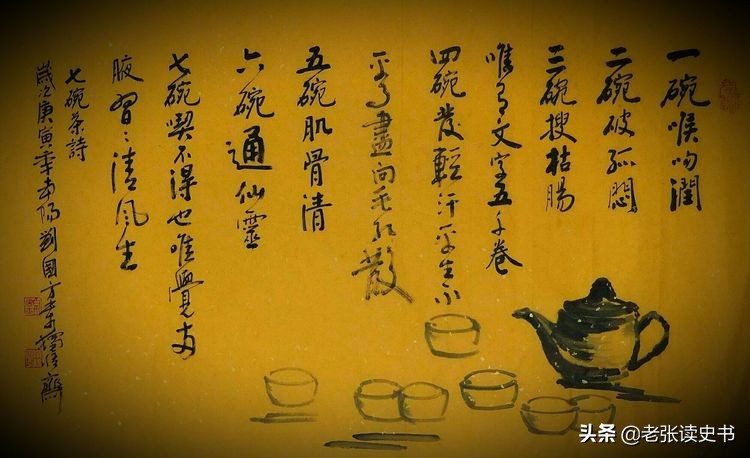 一碗喉吻潤
二碗破孤悶
三碗搜枯腸
唯有文字五千卷
四碗發輕汗平生不
平事盡向毛孔散
五碗肌骨清
六碗通仙靈
七碗喫不得也唯覺兩
腋習〻清風生
七碗茶詩
歲次庚寅 陽劉國方 齋
头条 @老张读史书